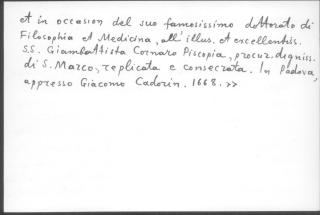 et in occasion del suo famosissimo dottorato di
Filosophia et Medicina, all'illus. et excellentiss.
S.S. Giambattista Cornaro Piscopia, procur. digniss.
di S. Marco, replicata e consecrata. In Padova,
appresso Giacomo Cadorin. 1668. >>